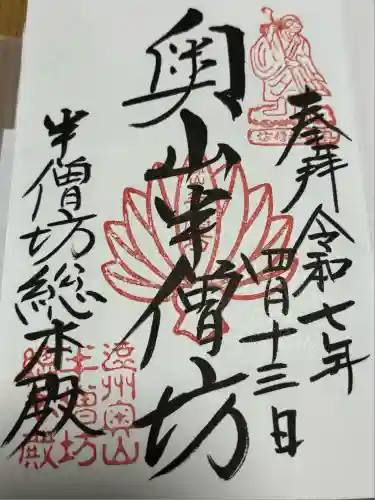 奉拝
令和七年
四月十三日
奥山半僧坊
半僧坊総本殿
遠州奥山
半僧坊